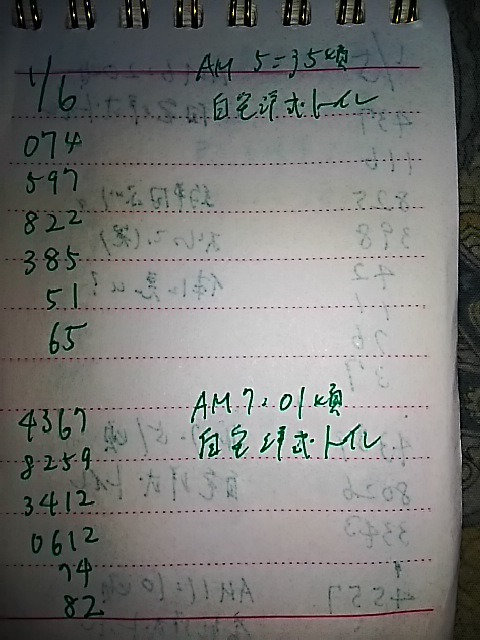 1/6 AM 5:35頃
自宅洋式トイレ
074
597
822
385
51
65
AM 7:01頃
4367
自宅洋式トイレ
8259
3412
0612
74
82